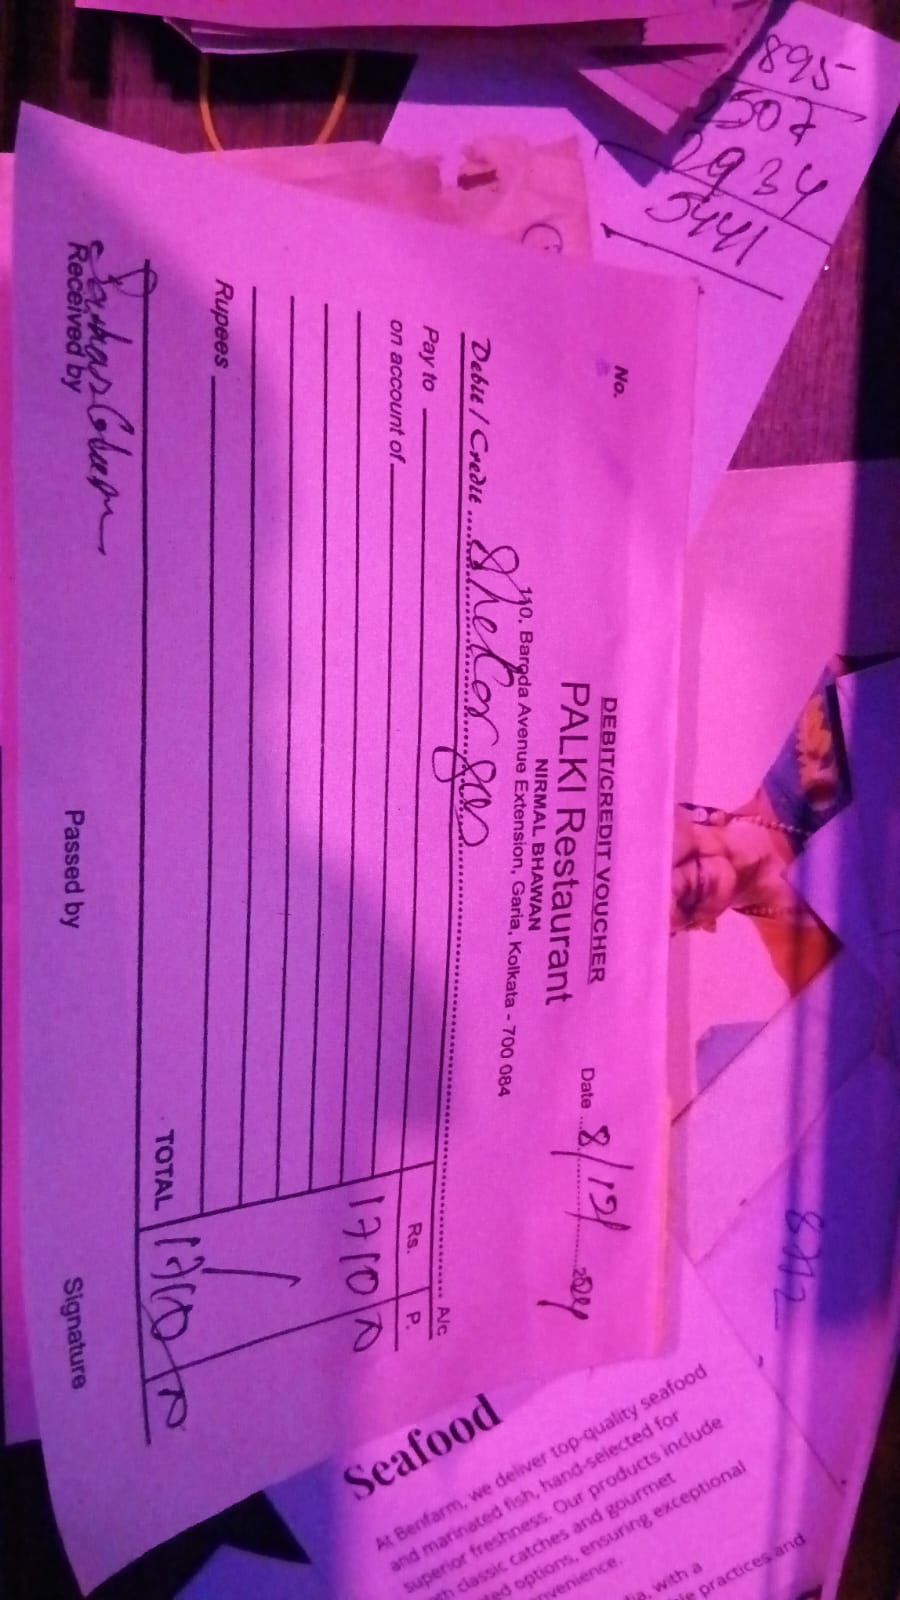 895
2507
2934
5441
No.
DEBIT/CREDIT VOUCHER
PALKI Restaurant
NIRMAL BHAWAN
110, Baroda Avenue Extension, Garia, Kolkata - 700 084
Date 8/12/2024
Debit / Credit A/c
Pay to Rs. P.
on account of 1710
Rupees
TOTAL 1710
Received by Passed by Signature
8712
Seafood
At Benfarm, we deliver top-quality seafood
and marinated fish, hand-selected for
superior freshness. Our products include
classic catches and gourmet
options, ensuring exceptional
with a
practices and